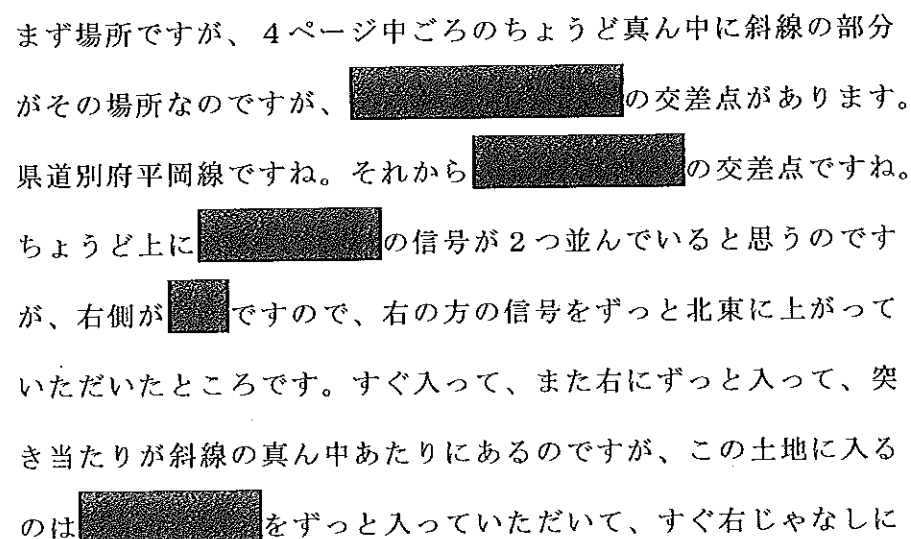 まず場所ですが、4ページ中ごろのちょうど真ん中に斜線の部分
がその場所なのですが、の交差点があります。
県道別府平岡線ですね。それからの交差点ですね。
ちょうど上にの信号が2つ並んでいると思うのです
が、右側がですので、右の方の信号をずっと北東に上がって
いただいたところです。すぐ入って、また右にずっと入って、突
き当たりが斜線の真ん中あたりにあるのですが、この土地に入る
のはをずっと入っていただいて、すぐ右じゃなしに